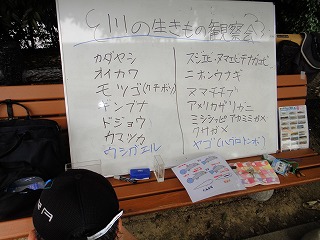 川の生きもの観察会
カダヤシ
オイカワ
モツゴ(クチボソ)
ギンブナ
ドジョウ
カマツカ
ウシガエル
スジエビ・ヌマエビ・テナガエビ
ニホンウナギ
ヌマチチブ
アメリカザリガニ
ミシシッピアカミミガメ
クサガメ
ヤゴ(ハグロトンボ)